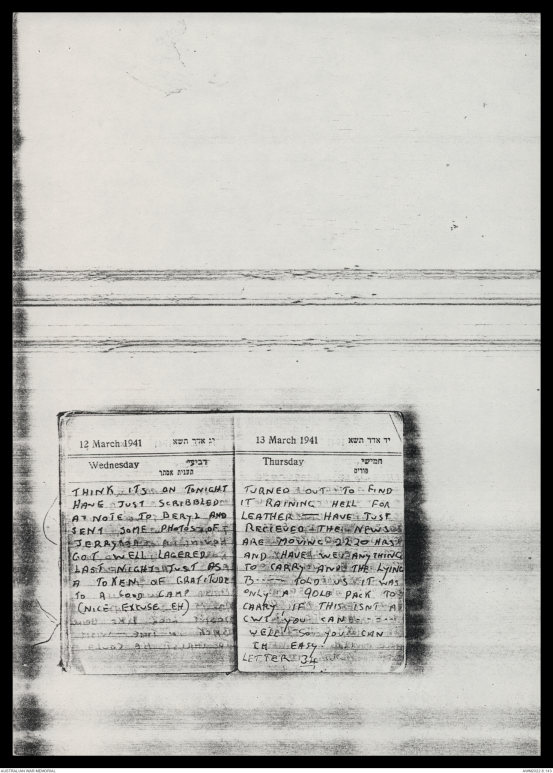 12 March 1941 יג אדר תשא
Wednesday רביעי
תענית אסתר
THINK ITS ON TONIGHT
HAVE JUST SCRIBBLED
A NOTE TO BERYL AND
SENT SOME PHOTOS OF
GOT WELL LAGERED
LAST NIGHT JUST AS
A TOKEN OF GRATITUDE
TO A GOOD CAMP
(NICE EXCUSE EH)
13 March 1941 יד אדר תשא
Thursday חמישי
פורים
TURNED OUT TO FIND
IT RAINING HELL FOR
LEATHER — HAVE JUST
RECIEVED THE NEWS
ARE MOVING 2220 HRS
AND HAVE WE ANYTHING
TO CARRY AND THE LYING
B—— TOLD US IT WAS
ONLY A 90LB PACK TO
CARRY IF THIS ISNT A
CWT YOU CAN
WELL SO YOU CAN
EASY
LETTER 34
AUSTRALIAN WAR MEMORIAL